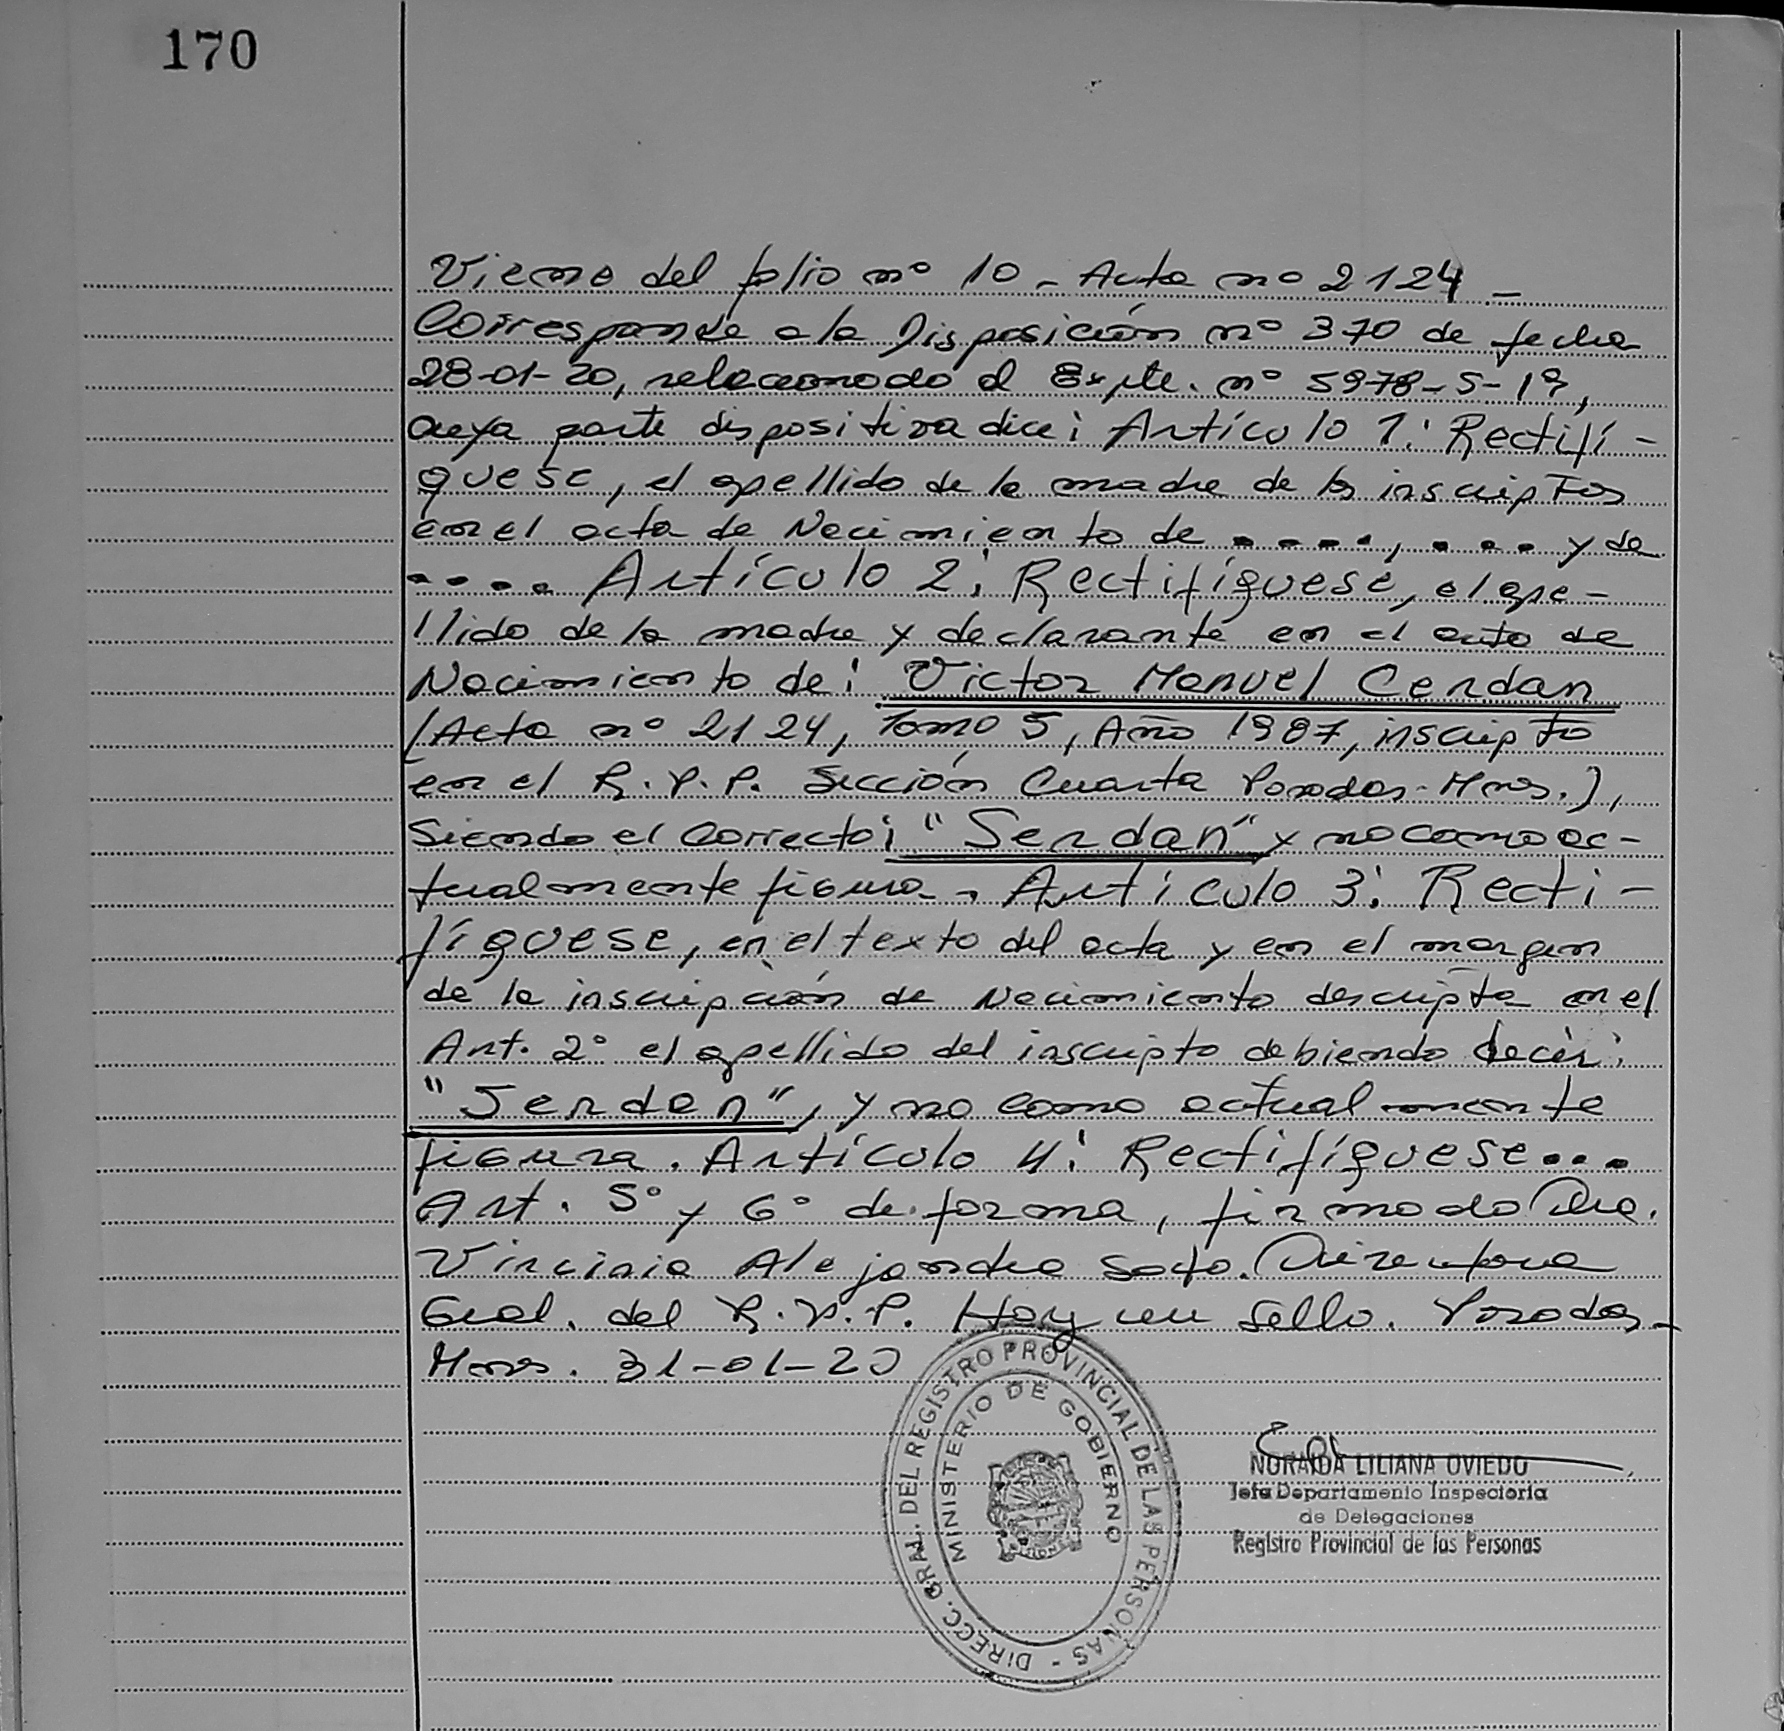 170
Viene del folio nº 10 - Acta nº 2124 -
Corresponde a la Disposición nº 370 de fecha
28-01-20, relacionado al Expte. nº 5978-S-19,
cuya parte dispositiva dice: Artículo 1: Rectifí-
quese, el apellido de la madre de los inscriptos
en el acta de Nacimiento de ...., .... y de
.... Artículo 2: Rectifíquese, el ape-
llido de la madre y declarante en el acta de
Nacimiento de: Victor Manuel Cerdan
(Acta nº 2124, Tomo 5, Año 1987, inscripto
en el R.P.P. Sección Cuarta Posadas-Mnes.),
Siendo el Correcto: "Serdan" y no como ac-
tualmente figura. Artículo 3: Recti-
fíquese, en el texto del acta y en el margen
de la inscripción de Nacimiento descripta en el
Art. 2º el apellido del inscripto debiendo decir:
"Serdan", y no como actualmente
figura. Artículo 4: Rectifíquese...
Art. 5º y 6º de forma, firmado Dra.
Virginia Alejandra Soto. Directora
Gral. del R.P.P. Hay un Sello. Posadas-
Mnes. 31-01-20
DIRECC. GRAL. DEL REGISTRO PROVINCIAL DE LAS PERSONAS -
MINISTERIO DE GOBIERNO
NORAIDA LILIANA OVIEDO
Jefa Departamento Inspectoria
de Delegaciones
Registro Provincial de las Personas